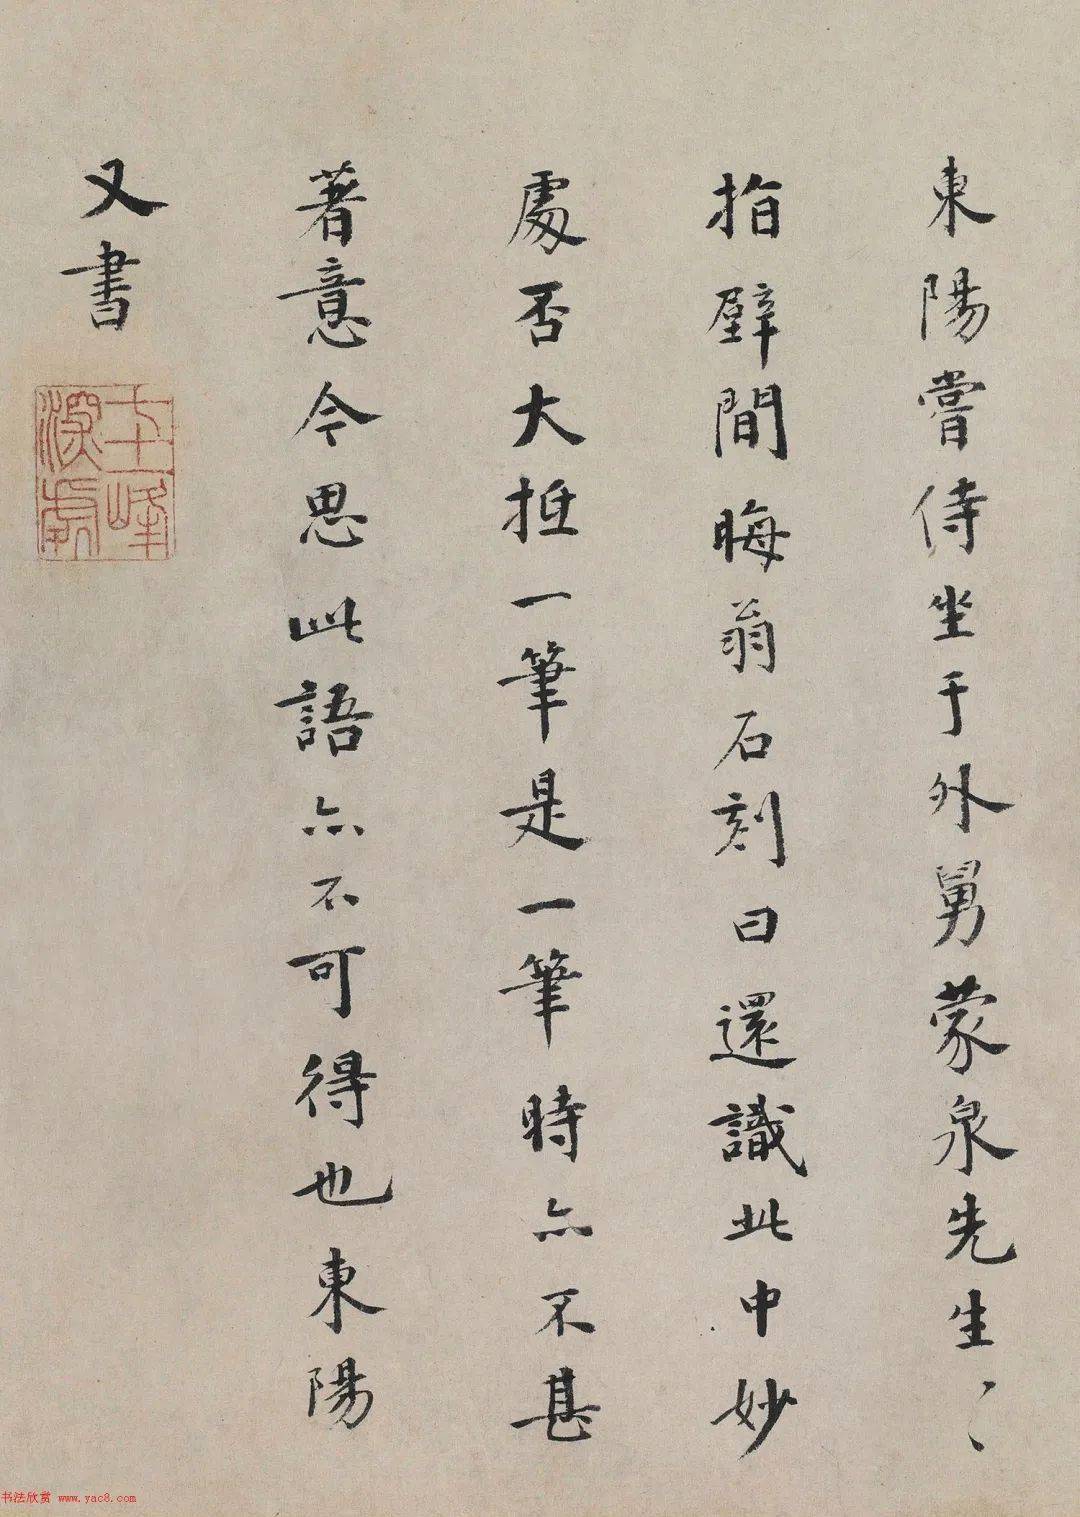 東陽嘗侍坐于外舅蒙泉先生〻
指壁間晦翁石刻曰還識此中妙
處否大抵一筆是一筆時亦不甚
著意今思此語亦不可得也東陽
又書
七十二峰深處
书法欣赏 www.yac8.com